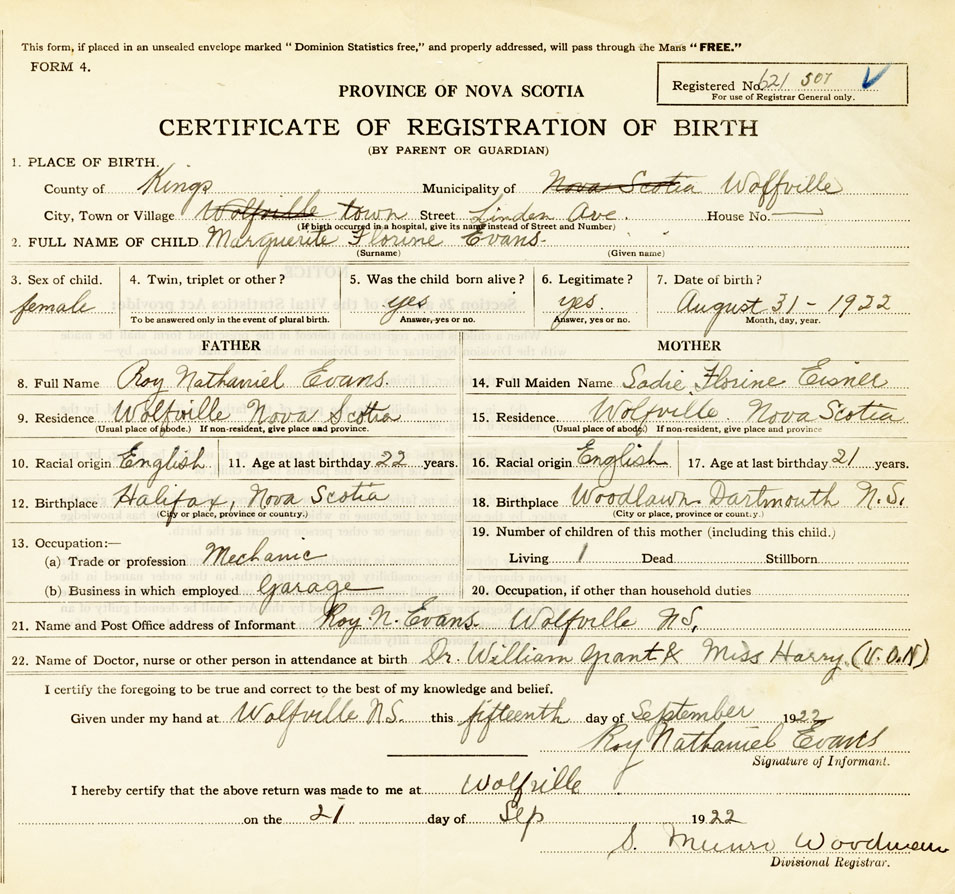 This form, if placed in an unsealed envelope marked "Dominion Statistics free," and properly addressed, will pass through the Mans "FREE."
FORM 4.
Registered No. 621 507
For use of Registrar General only.
PROVINCE OF NOVA SCOTIA
CERTIFICATE OF REGISTRATION OF BIRTH
(BY PARENT OR GUARDIAN)
1. PLACE OF BIRTH.
County of Kings Municipality of Nova Scotia Wolfville
City, Town or Village Wolfville town Street Linden Ave. House No.
(If birth occurred in a hospital, give its name instead of Street and Number)
2. FULL NAME OF CHILD Marguerite Florine Evans.
(Surname) (Given name)
3. Sex of child. 4. Twin, triplet or other? 5. Was the child born alive? 6. Legitimate? 7. Date of birth?
female yes yes. August 31 - 1922
To be answered only in the event of plural birth. Answer, yes or no. Answer, yes or no. Month, day, year.
FATHER MOTHER
8. Full Name Roy Nathaniel Evans. 14. Full Maiden Name Sadie Florine Eisner
9. Residence Wolfville Nova Scotia 15. Residence. Wolfville. Nova Scotia
(Usual place of abode.) If non-resident, give place and province. (Usual place of abode) If non-resident, give place and province
10. Racial origin English 11. Age at last birthday 22 years. 16. Racial origin English 17. Age at last birthday 21 years.
12. Birthplace Halifax, Nova Scotia 18. Birthplace Woodlawn Dartmouth N.S.
(City or place, province or country.) (City or place, province or country.)
13. Occupation:— 19. Number of children of this mother (including this child.)
(a) Trade or profession Mechanic Living 1 Dead Stillborn
(b) Business in which employed Garage 20. Occupation, if other than household duties
21. Name and Post Office address of Informant Roy N. Evans. Wolfville NS,
22. Name of Doctor, nurse or other person in attendance at birth Dr. William Grant & Miss Harry (V.O.N)
I certify the foregoing to be true and correct to the best of my knowledge and belief.
Given under my hand at Wolfville NS. this fifteenth day of September 1922
Roy Nathaniel Evans
Signature of Informant.
I hereby certify that the above return was made to me at Wolfville
on the 21 day of Sep 1922
S. Munro Woodman
Divisional Registrar.